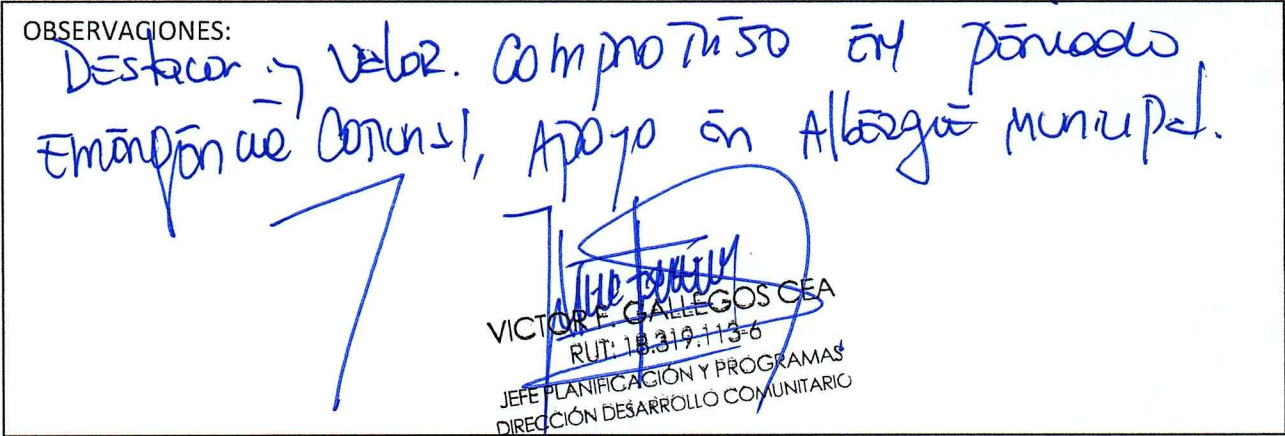 OBSERVACIONES:
Destacar y valor. compromiso en periodo
Emergencia Comunal, Apoyo en Albergue Municipal.
VICTOR F. GALLEGOS CEA
RUT: 18.319.113-6
JEFE PLANIFICACIÓN Y PROGRAMAS
DIRECCIÓN DESARROLLO COMUNITARIO